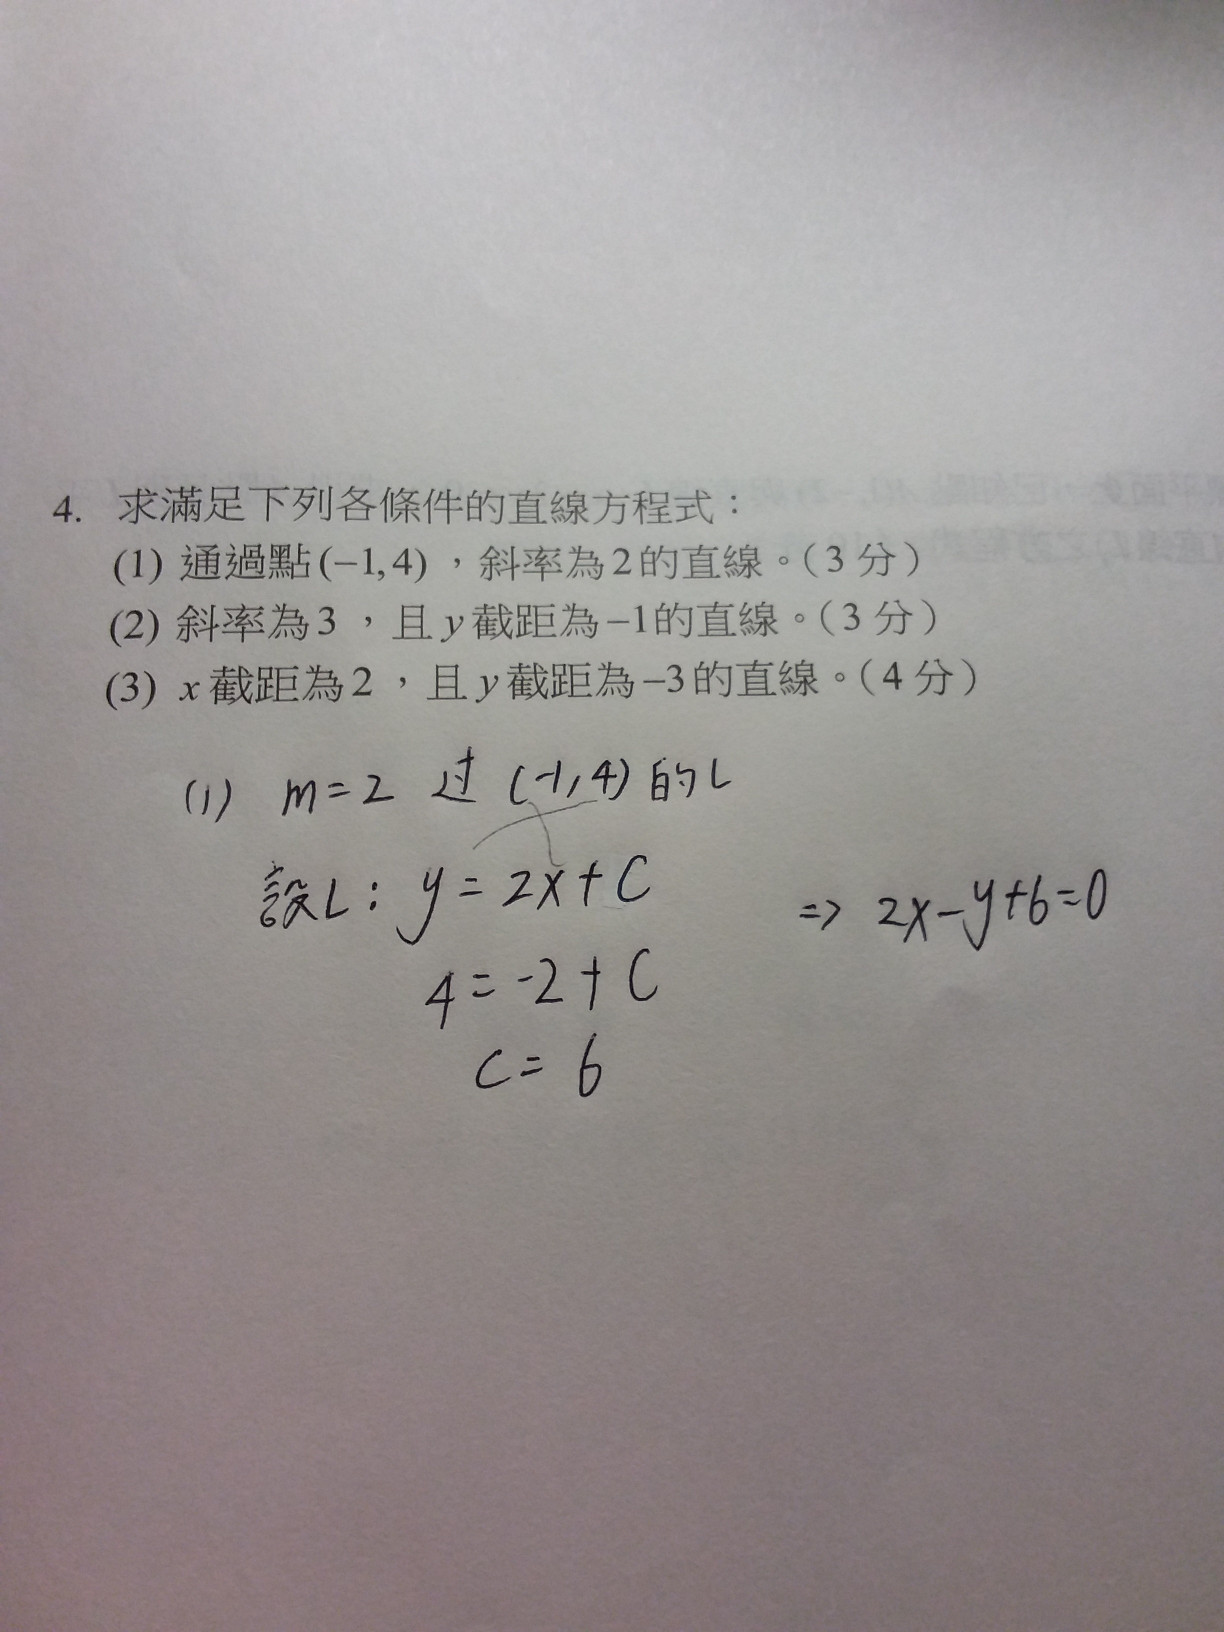 4. 求滿足下列各條件的直線方程式：
(1) 通過點(−1,4)，斜率為2的直線。(3分)
(2) 斜率為3，且y截距為−1的直線。(3分)
(3) x截距為2，且y截距為−3的直線。(4分)
(1) m=2 过 (-1,4) 的L
設L: y=2x+C
4=-2+C
C=6
=> 2x-y+6=0